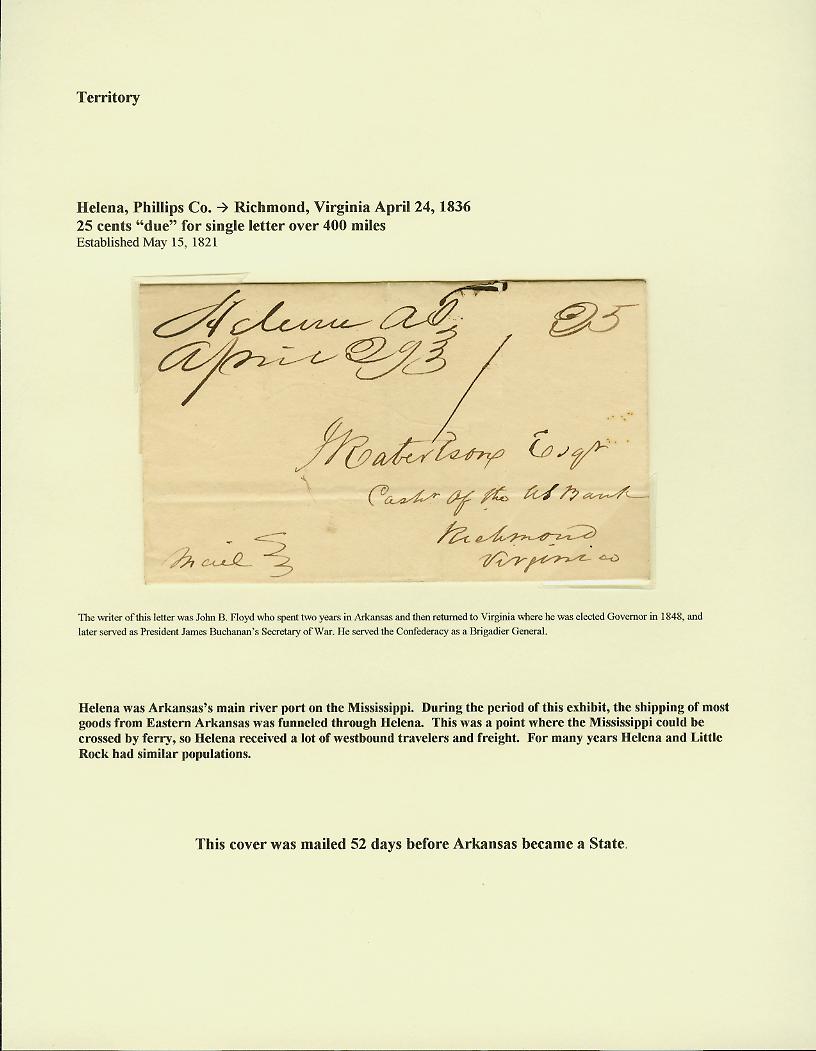 Territory
Helena, Phillips Co. → Richmond, Virginia April 24, 1836
25 cents “due” for single letter over 400 miles
Established May 15, 1821
Helena AT. 25
April 29
J Robertson Esqr
Cashr of the US Bank
Richmond
Mail Virginia
The writer of this letter was John B. Floyd who spent two years in Arkansas and then returned to Virginia where he was elected Governor in 1848, and
later served as President James Buchanan’s Secretary of War. He served the Confederacy as a Brigadier General.
Helena was Arkansas’s main river port on the Mississippi. During the period of this exhibit, the shipping of most
goods from Eastern Arkansas was funneled through Helena. This was a point where the Mississippi could be
crossed by ferry, so Helena received a lot of westbound travelers and freight. For many years Helena and Little
Rock had similar populations.
This cover was mailed 52 days before Arkansas became a State.